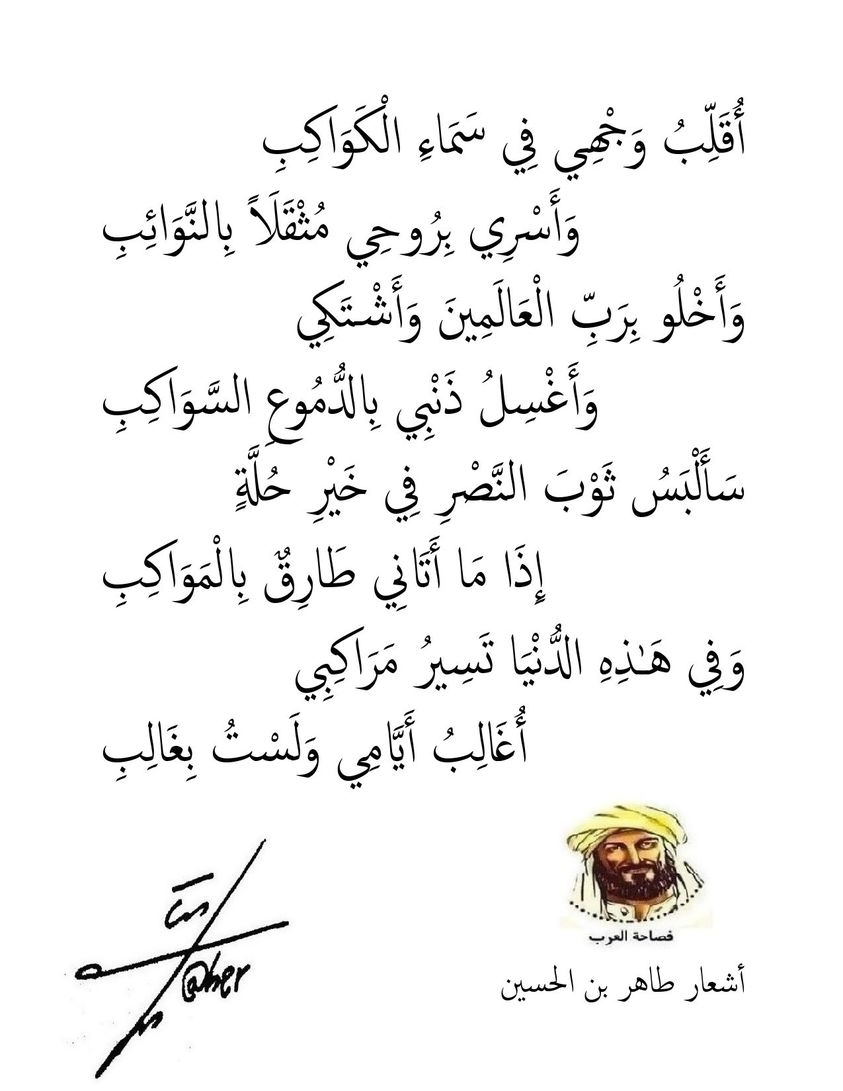 أُقَلِّبُ وَجْهِي فِي سَمَاءِ الْكَوَاكِبِ
وَأَسْرِي بِرُوحِي مُثْقَلَاً بِالنَّوَائِبِ
وَأَخْلُو بِرَبِّ الْعَالَمِينَ وَأَشْتَكِي
وَأَغْسِلُ ذَنْبِي بِالدُّمُوعِ السَّوَاكِبِ
سَأَلْبَسُ ثَوْبَ النَّصْرِ فِي خَيْرِ حُلَّةٍ
إِذَا مَا أَتَانِي طَارِقٌ بِالْمَوَاكِبِ
وَفِي هَـٰذِهِ الدُّنْيَا تَسِيرُ مَرَاكِبِي
أُغَالِبُ أَيَّامِي وَلَسْتُ بِغَالِبِ
فصاحة العرب
أشعار طاهر بن الحسين
@her